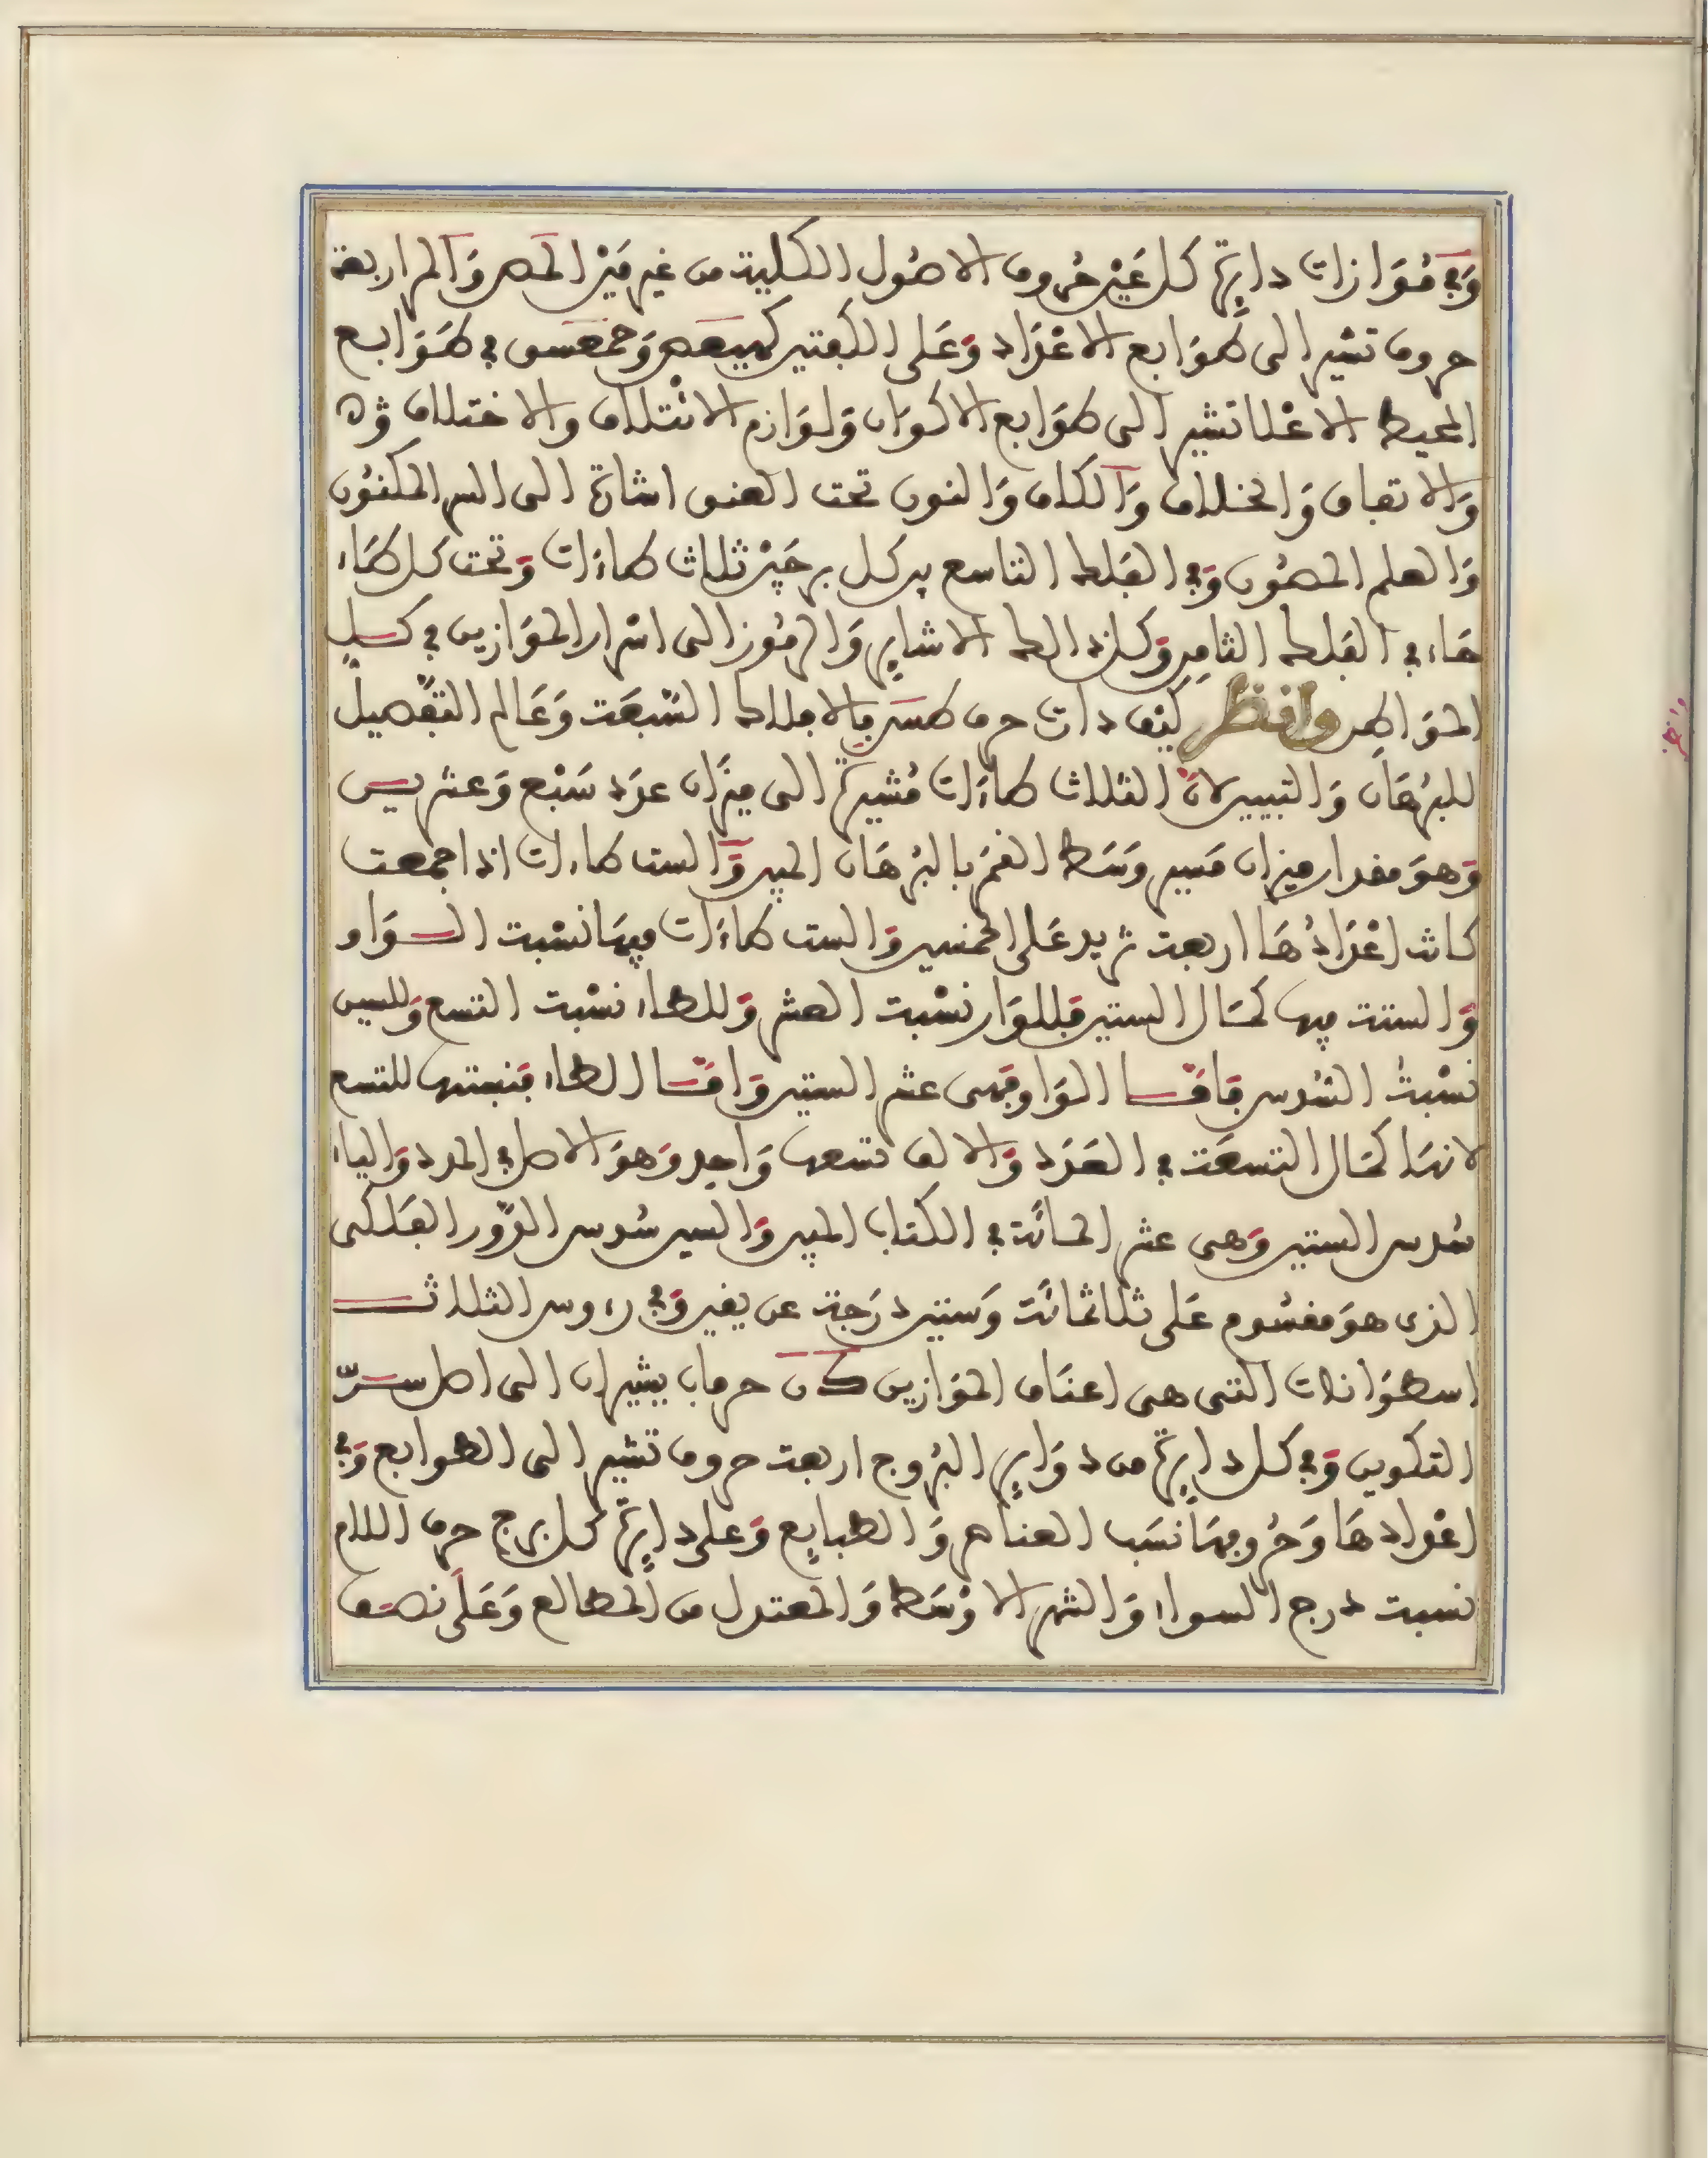 وَفي مُوَازات دايرة كل عَيْن حُروف الاصُول الكلية من غير مَيْز المص وَالمر اربعة
حروف تشير الى طوَابع الاعْدَاد وَعَلى الكفتين كهيعص وَحمعسق في طوَابع
المحيط الاعْلا تشير الى طوَابع الاكوَان وَلوَازم الائتلاف والاختلاف
وَالاتفاق وَالخلاف وَالكاف وَالنون تحت العنق اشارة الى السر المكنُون
وَالعلم المصُون وَفي الفلك التاسع بين كل برجَيْن ثلاث طاءَات وَتحت كل طَاء
هَاء في الفلك الثامِن وَكل ذالك الاشاير وَالرمُوز الى اسْرار الموَازين في كل
الموَاطن وانظر كيْف دات حرف طس بالافلاك السَّبعَت وَعَالم التفْصيل
للبرْهَان وَالتبيين لان الثلاث طاءَات مُشيرة الى ميزَان عدَد سَبْع وَعشرين
وَهوَ مقدار ميزان مَسير وَسَط القمَر بالبرْهَان المبين وَالست طاءات اذا جمعت
كانت اعْدَادُهَا اربعت تزيد عَلى الخمسين وَالست طاءَات فيهَا نسْبت السوَاو
وَالستت فيها كمَال الستين فللوَاو نسْبت العشر وَللطاء نسْبت التسع وَللسين
نسْبت السُّدس فَامَّا الوَاو فَهى عشر الستين وَامَّا الطاء فنسبتها للتسع
لانهَا كمَال التسعَت في العَدَد وَالالف تسعها وَاحِد وَهوَ الاصل في المدد وَالياء
سُدس الستين وَهى عشر المائَت في الكتاب المبين وَالسين سُدس الدَّور الفَلكى
الذى هوَ مقسُوم عَلى ثلاثمائَت وَستين دَرَجة عن يقين وَفي رءوس الثلاث
اسطوَانات التى هى اعنَاق الموَازين كَ ن حرفان يشيران الى اصل سرّ
التكوين وَفي كل دايرة من دوَاير البُروج اربعت حروف تشير الى الطوابع وَفي
اعْدادهَا وَحُروفِهَا نسَب العناصر وَالطبايع وَعلى دايرة كل برج حرف اللام
نسبت درج السواء وَالشهر الاوْسَط وَالمعتدل من المطالع وَعَلى نصف